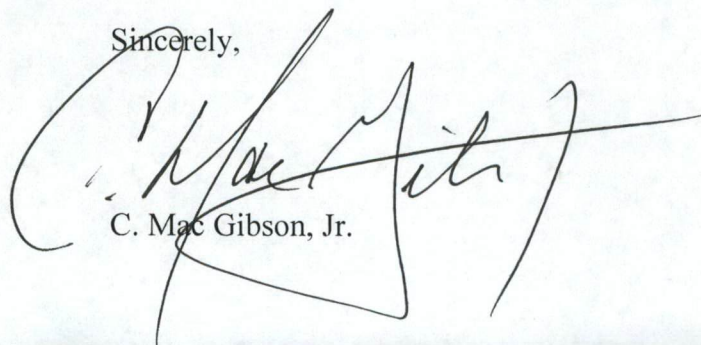 Sincerely,
C. Mac Gibson, Jr.
C. Mac Gibson, Jr.